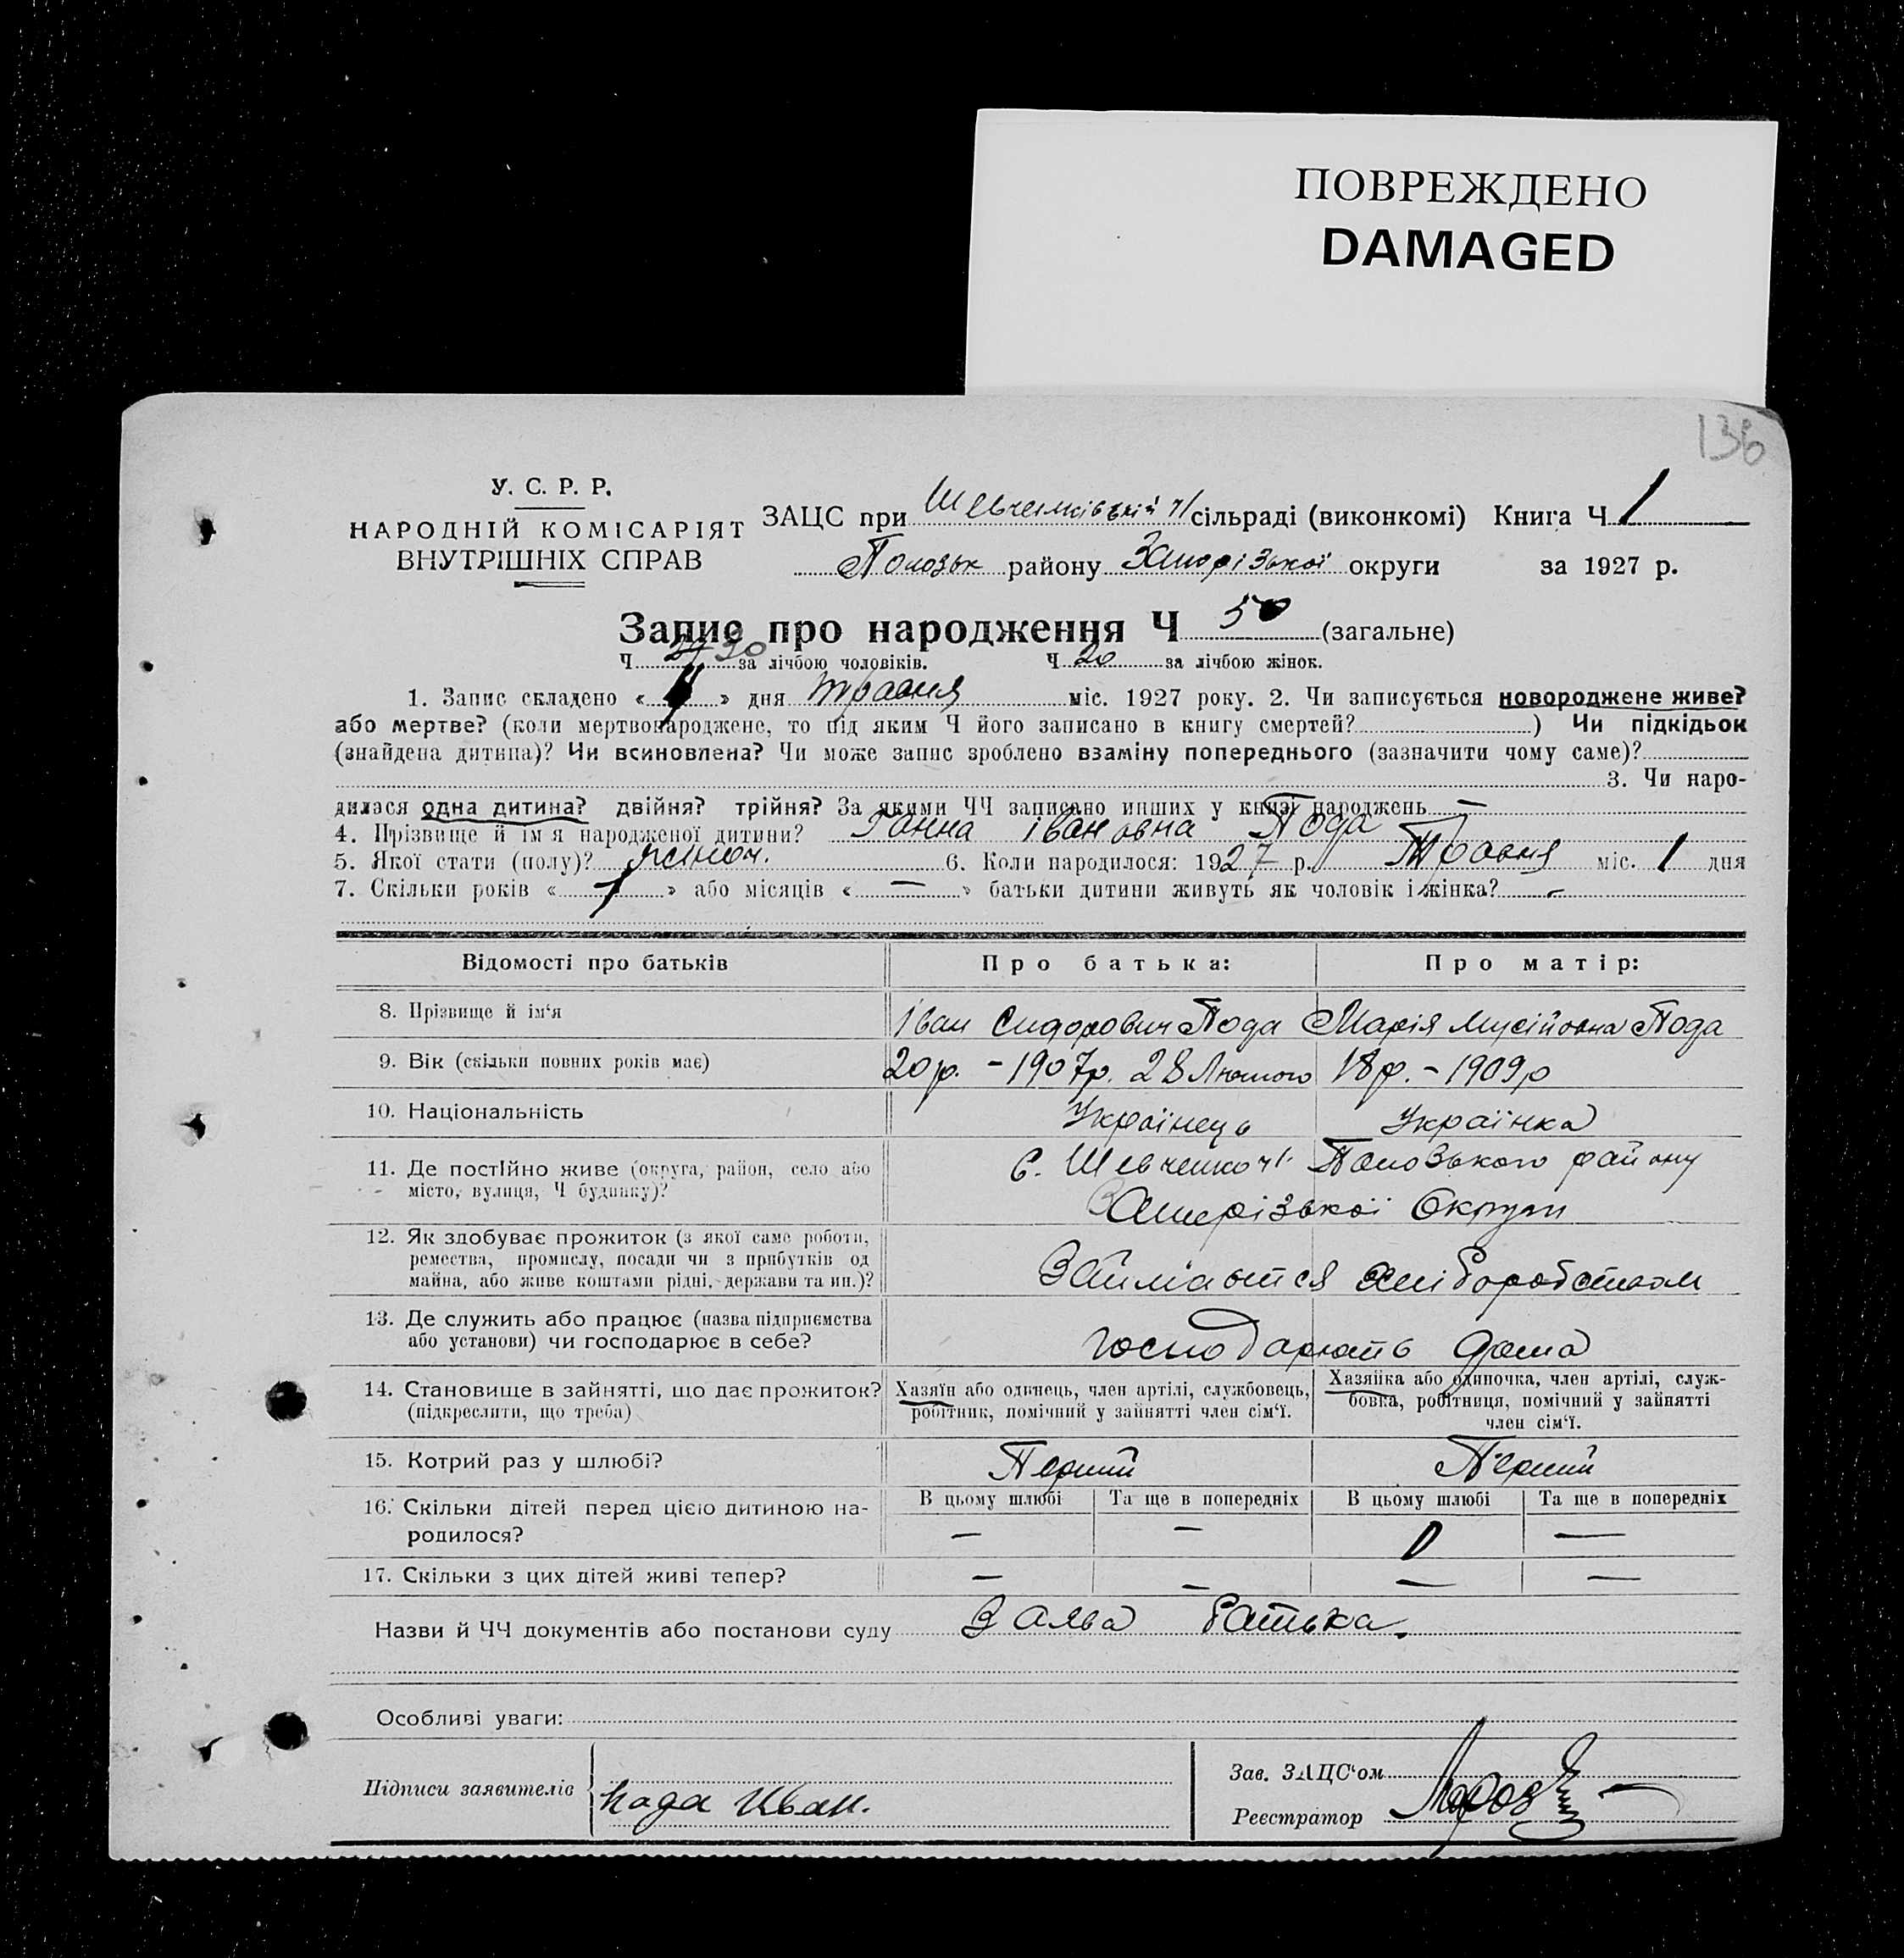 ПОВРЕЖДЕНО
DAMAGED
136
У. С. Р. Р.
НАРОДНІЙ КОМІСАРІЯТ
ВНУТРІШНІХ СПРАВ
ЗАЦС при Шевченківській ч/ сільраді (виконкомі) Книга Ч 1
Полозьк району Запорізької округи за 1927 р.
Запис про народження Ч 50 (загальне)
Ч 30 за лічбою чоловіків. Ч 20 за лічбою жінок.
1. Запис складено « » дня травня міс. 1927 року. 2. Чи записується новороджене живе?
або мертве? (коли мертвонароджене, то під яким Ч його записано в книгу смертей? ) Чи підкідьок
(знайдена дитина)? Чи всиновлена? Чи може запис зроблено взаміну попереднього (зазначити чому саме)?
3. Чи наро-
дилася одна дитина? двійня? трійня? За якими ЧЧ записано инших у книзі народжень —
4. Прізвище й ім'я народженої дитини? Ганна Івановна Пода
5. Якої стати (полу)? жіноч. 6. Коли народилося: 1927 р. Травня міс. 1 дня
7. Скільки років « 1 » або місяців « — » батьки дитини живуть як чоловік і жінка? -
Відомості про батьків Про батька: Про матір:
8. Прізвище й ім'я Іван Сидорович Пода Марія Мусійовна Пода
9. Вік (скільки повних років має) 20 р. - 1907р. 28 Лютого 18 р. - 1909р
10. Національність Українець Українка
11. Де постійно живе (округа, район, село або
місто, вулиця, Ч будинку)?
с. Шевченко ч1. Полозького району
Запорізької Округи
12. Як здобуває прожиток (з якої саме роботи,
ремества, промислу, посади чи з прибутків од
майна, або живе коштами рідні, держави та ин.)?
Займаються хліборобством
13. Де служить або працює (назва підприємства
або установи) чи господарює в себе?
господарюють дома
14. Становище в зайнятті, що дає прожиток?
(підкреслити, що треба)
Хазяїн або одинець, член артілі, службовець,
робітник, помічний у зайнятті член сім'ї.
Хазяйка або одиночка, член артілі, служ-
бовка, робітниця, помічний у зайнятті
член сім'ї.
15. Котрий раз у шлюбі? Перший Перший
16. Скільки дітей перед цією дитиною на-
родилося?
В цьому шлюбі Та ще в попередніх В цьому шлюбі Та ще в попередніх
— — 0 —
17. Скільки з цих дітей живі тепер? — — — —
Назви й ЧЧ документів або постанови суду Заява батька.
Особливі уваги:
Підписи заявителів Пода Иван.
Зав. ЗАЦС'ом
Реєстратор